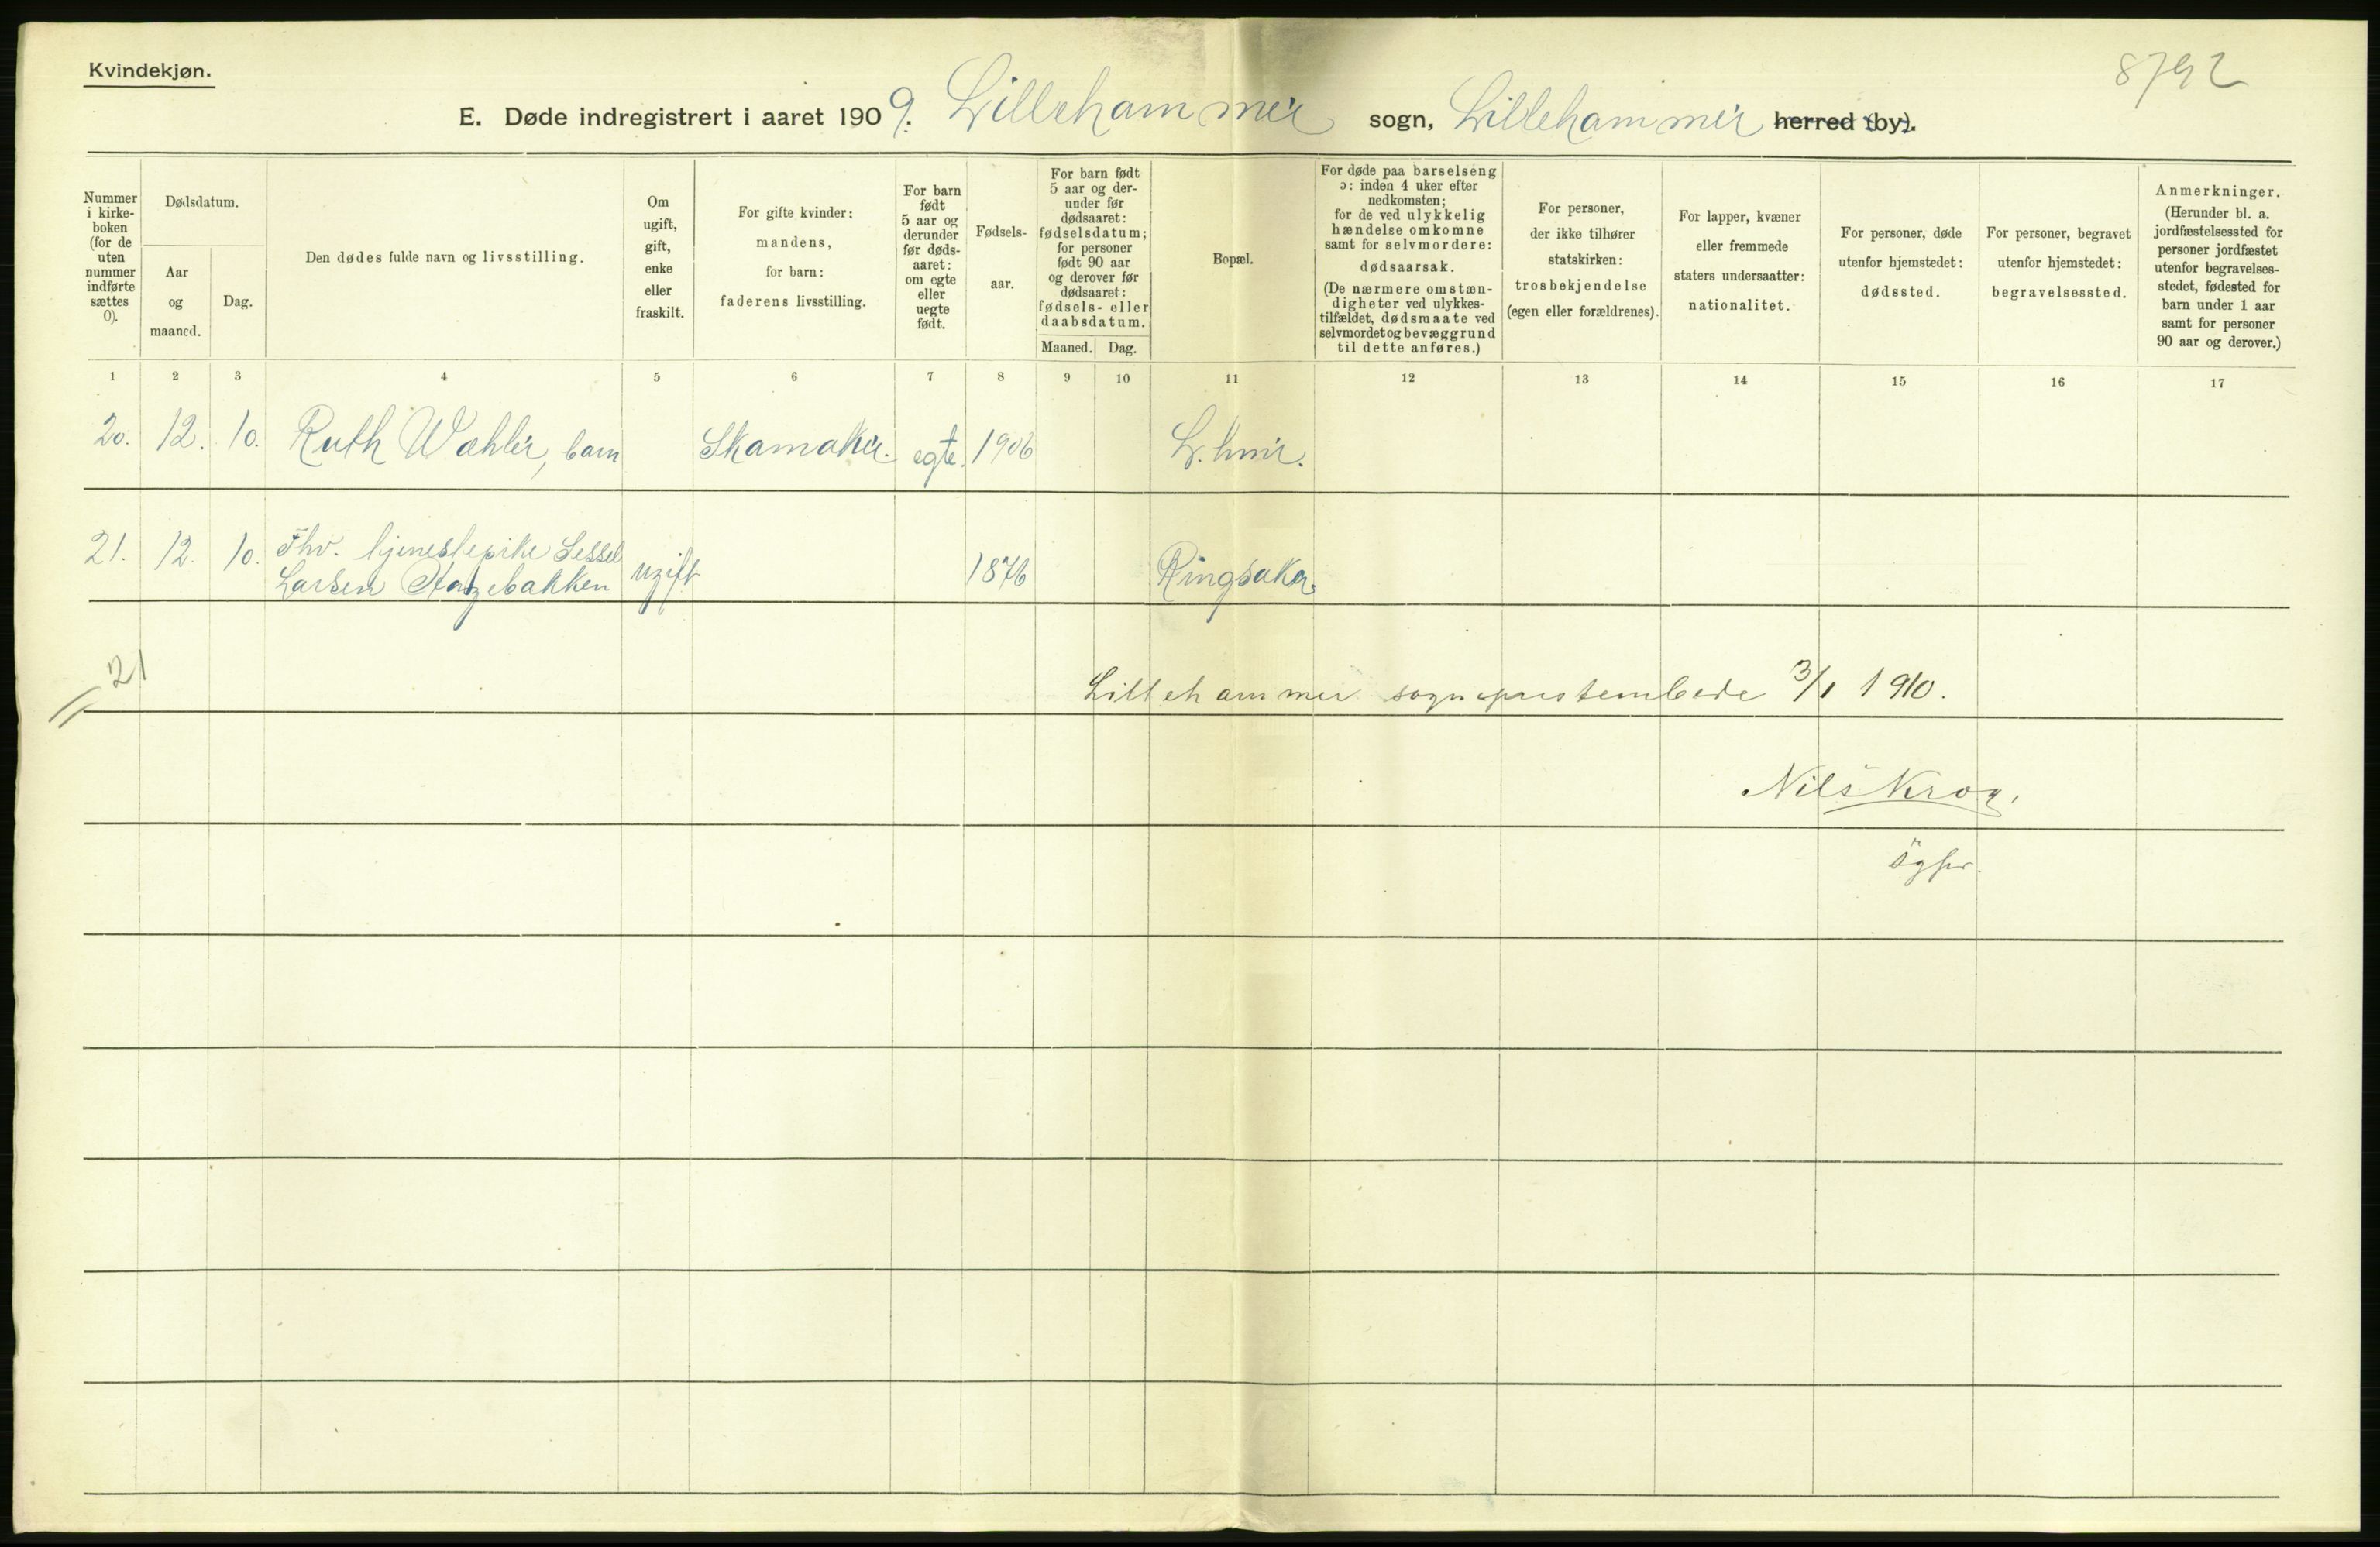 Kvindekjøn.
8792
E. Døde indregistrert i aaret 1909. Lillehammer sogn, Lillehammer herred (by).
Nummer i kirke-boken (for de uten nummer indførte sættes 0).
Dødsdatum.
Aar og maaned.
Dag.
Den dødes fulde navn og livsstilling.
Om ugift, gift, enke eller fraskilt.
For gifte kvinder: mandens, for barn: faderens livsstilling.
For barn født 5 aar og derunder før døds-aaret: om egte eller uegte født.
Fødsels-aar.
For barn født 5 aar og der-under før dødsaaret: fødselsdatum; for personer født 90 aar og derover før dødsaaret: fødsels- eller daabsdatum.
Maaned. Dag.
Bopæl.
For døde paa barselseng ɔ: inden 4 uker efter nedkomsten; for de ved ulykkelig hændelse omkomne samt for selvmordere: dødsaarsak. (De nærmere omstæn-digheter ved ulykkes-tilfældet, dødsmaate ved selvmordet og bevæggrund til dette anføres.)
For personer, der ikke tilhører statskirken: trosbekjendelse (egen eller forældrenes).
For lapper, kvæner eller fremmede staters undersaatter: nationalitet.
For personer, døde utenfor hjemstedet: dødssted.
For personer, begravet utenfor hjemstedet: begravelsessted.
Anmerkninger. (Herunder bl. a. jordfæstelsessted for personer jordfæstet utenfor begravelses-stedet, fødested for barn under 1 aar samt for personer 90 aar og derover.)
1 2 3 4 5 6 7 8 9 10 11 12 13 14 15 16 17
20. 12. 10. Ruth Wæhler, barn Skomaker. egte. 1906 L.hmr.
21. 12. 10. Fhv. tjenestepike Sessel
Larsen ugift 1876 Ringsaker.
21
Lillehammer sogneprestembede 3/1 1910.
Nils Krog,
sgpr.